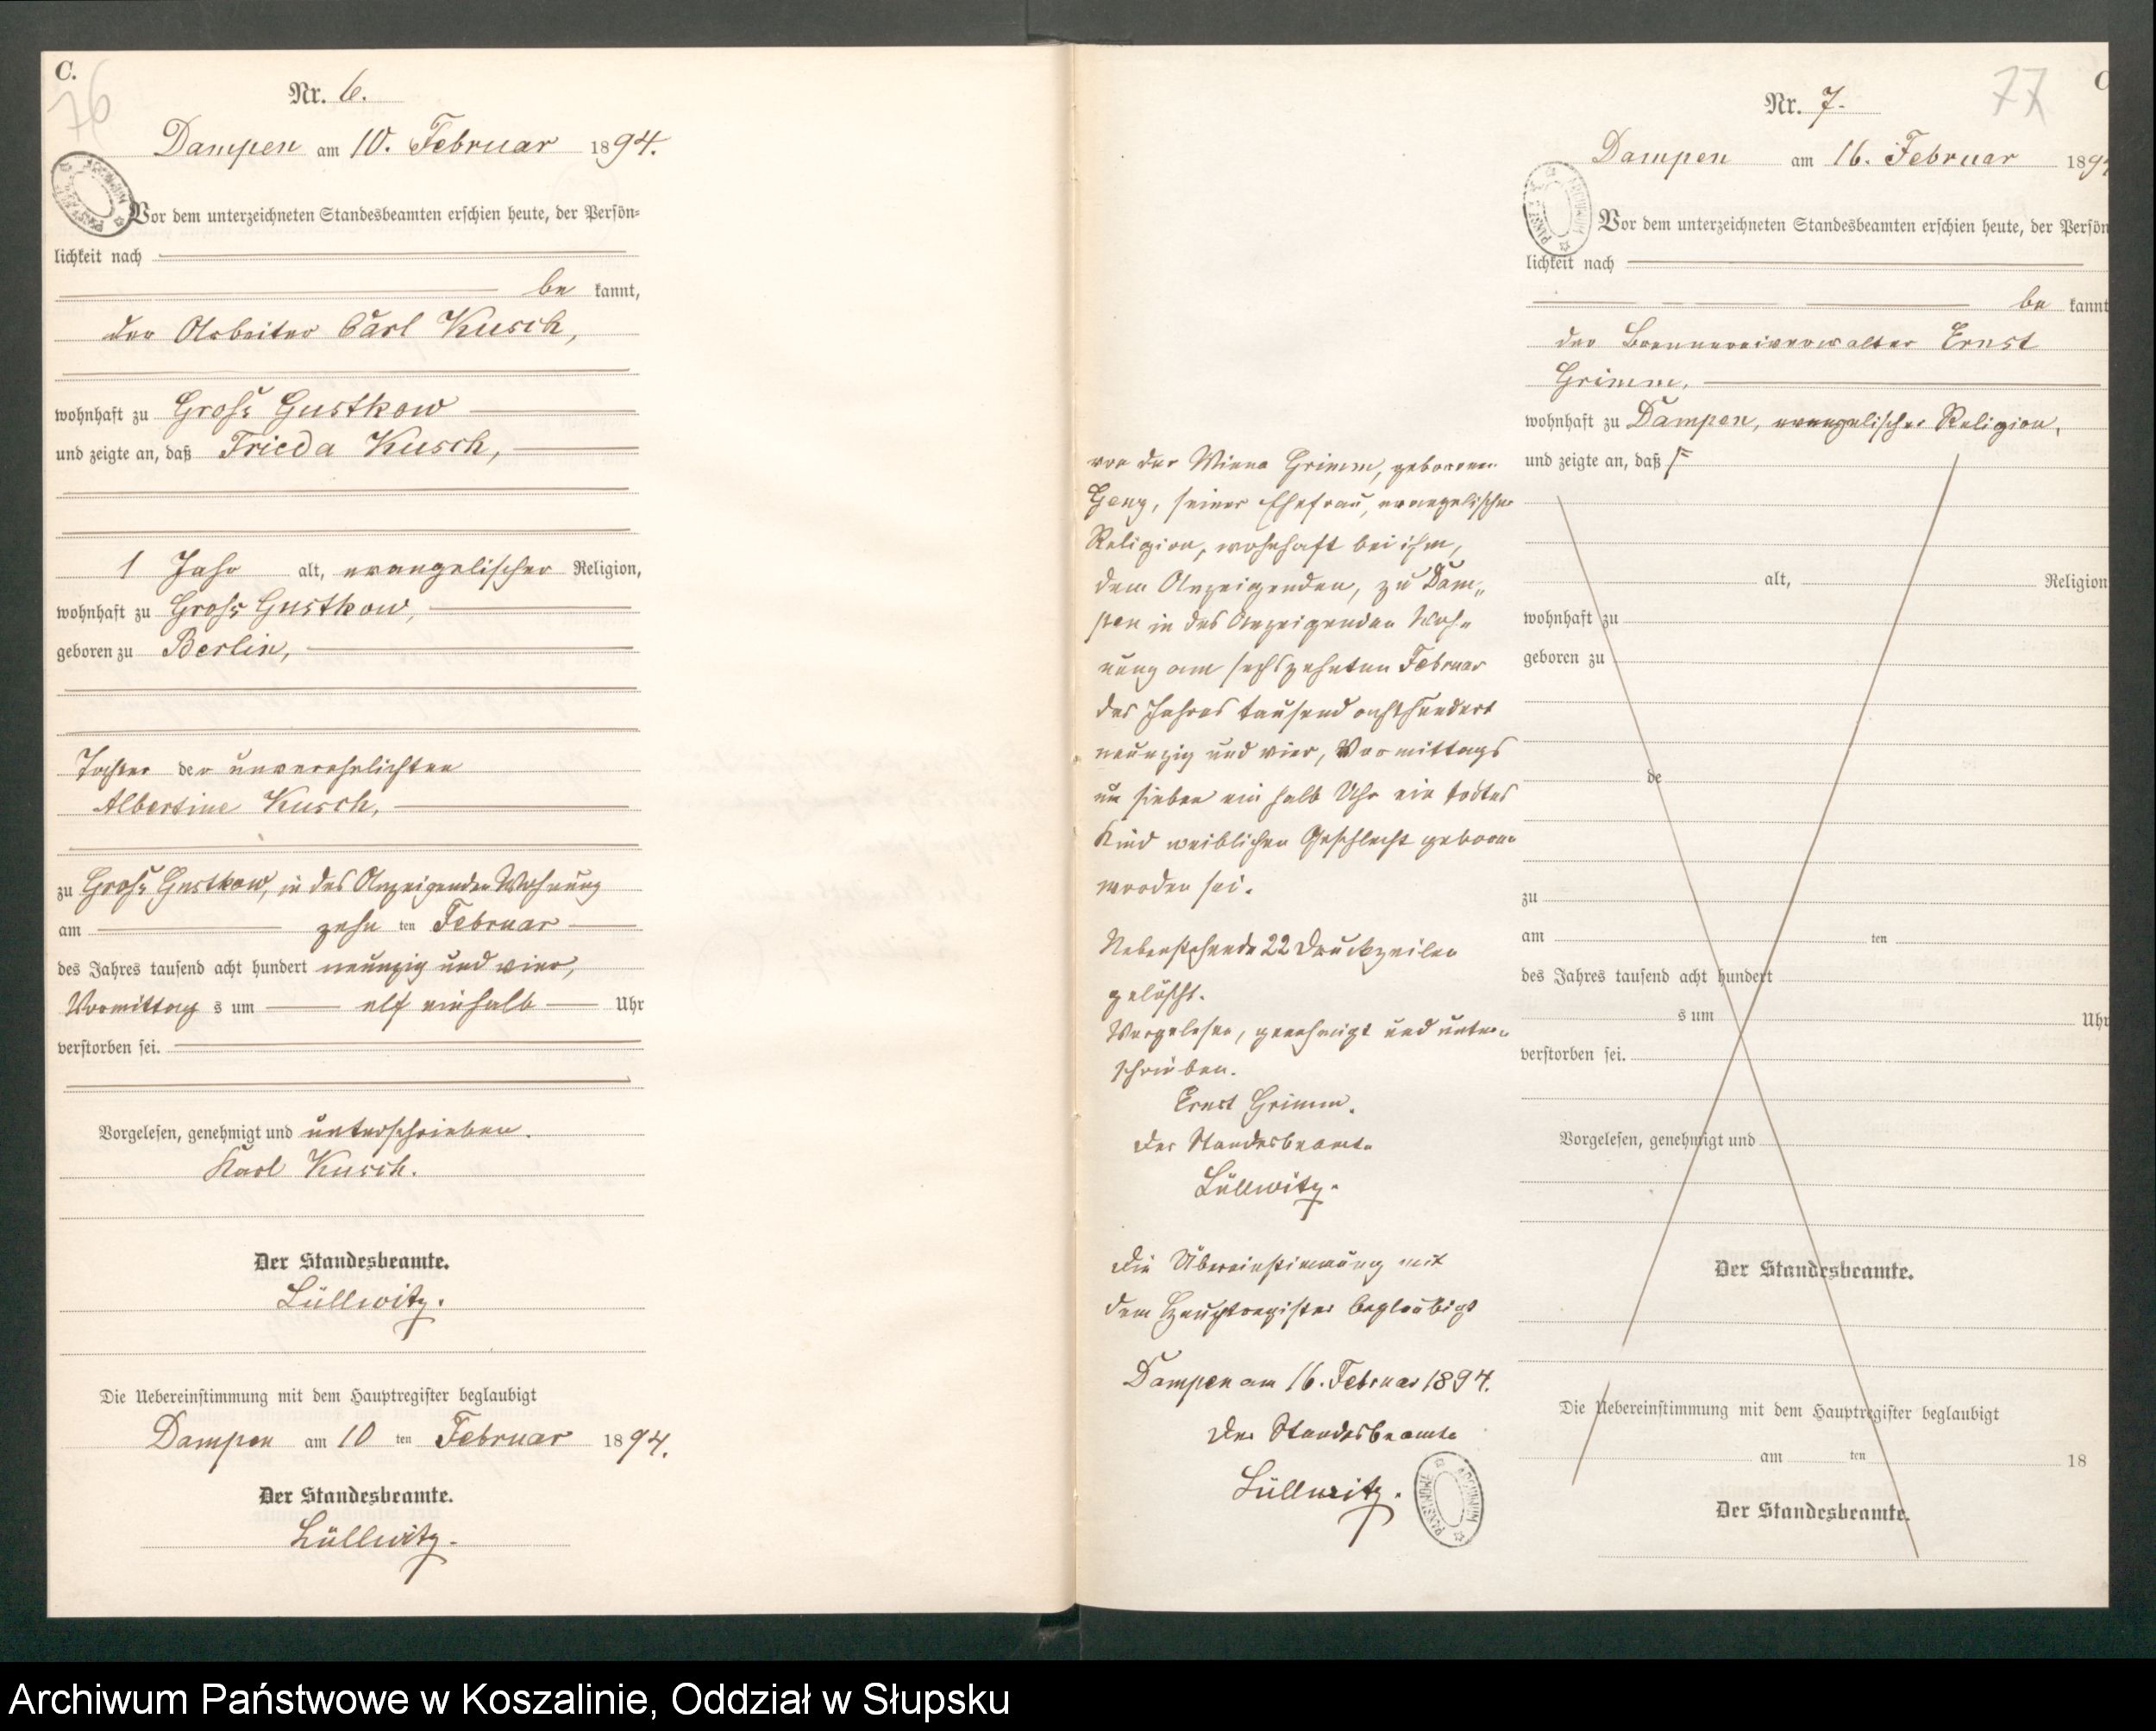 C.
76
Nr. 6.
Dampen am 10. Februar 1894.
Vor dem unterzeichneten Standesbeamten erschien heute, der Persön-
lichkeit nach
be kannt,
der Arbeiter Carl Kusch,
wohnhaft zu Gross Gustkow
und zeigte an, daß Frieda Kusch,
1 Jahr alt, evangelischer Religion,
wohnhaft zu Gross Gustkow,
geboren zu Berlin,
Tochter der unverehelichten
Albertine Kusch,
zu Gross Gustkow, in des Anzeigenden Wohnung
am zehn ten Februar
des Jahres tausend acht hundert neunzig und vier,
Vormittag s um elf einhalb Uhr
verstorben sei.
Vorgelesen, genehmigt und unterschrieben.
Karl Kusch.
Der Standesbeamte.
Lüllwitz.
Die Uebereinstimmung mit dem Hauptregister beglaubigt
Dampen am 10 ten Februar 1894.
Der Standesbeamte.
Lüllwitz.
C
77
Nr. 7.
Dampen am 16. Februar 189
Vor dem unterzeichneten Standesbeamten erschien heute, der Persön
lichkeit nach
be kannt
der Brennereiverwalter Ernst
Grimm,
wohnhaft zu Dampen, evangelischer Religion,
und zeigte an, daß
von der Minna Grimm, geborenen
Genz, seiner Ehefrau, evangelischer
Religion, wohnhaft bei ihm,
dem Anzeigenden, zu Dam„
pen in des Anzeigenden Woh„
nung am sechszehnten Februar
des Jahres tausend achthundert
neunzig und vier, Vormittags
um sieben ein halb Uhr ein todtes
Kind weiblichen Geschlecht geboren
worden sei.
Nebenstehende 22 Druckzeilen
gelöscht.
Vorgelesen, genehmigt und unter„
schrieben.
Ernst Grimm.
Der Standesbeamte
Lüllwitz.
Die Übereinstimmung mit
dem Hauptregister beglaubigt
Dampen am 16. Februar 1894.
Der Standesbeamte
Lüllwitz.
alt, Religion
wohnhaft zu
geboren zu
de
zu
am ten
des Jahres tausend acht hundert
s um Uhr
verstorben sei.
Vorgelesen, genehmigt und
Der Standesbeamte.
Die Uebereinstimmung mit dem Hauptregister beglaubigt
am ten 18
Der Standesbeamte.
ARCHIWUM PAŃSTWOWE
Archiwum Państwowe w Koszalinie, Oddział w Słupsku